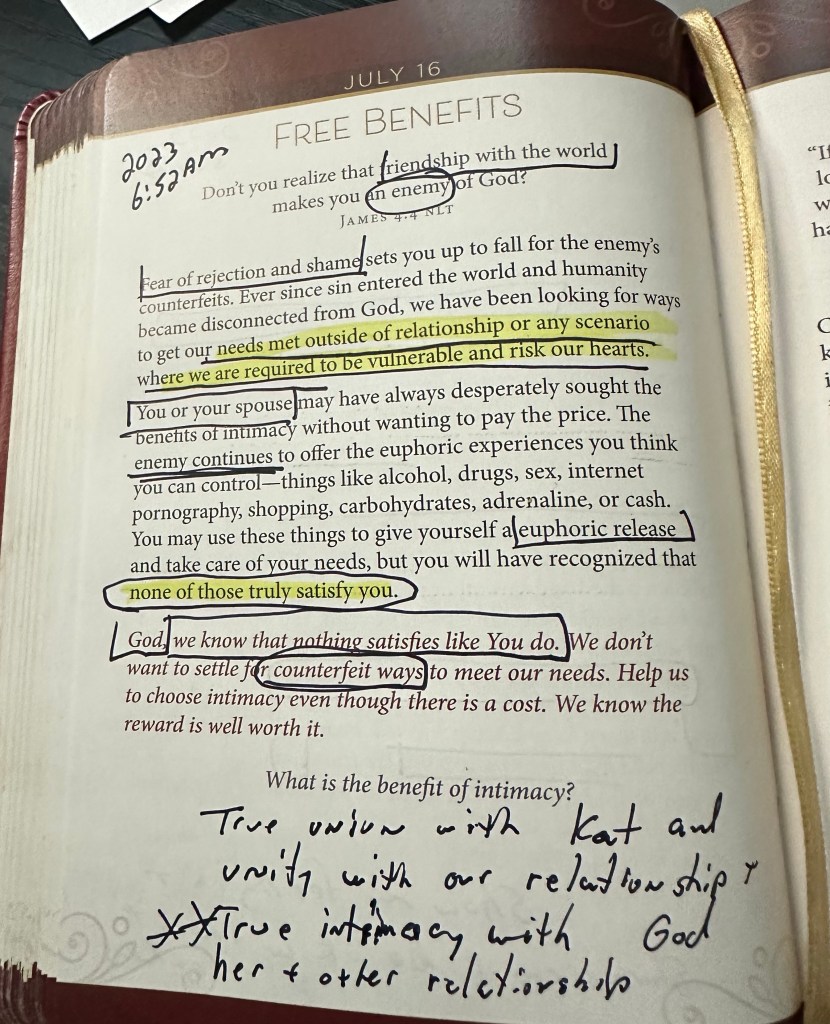 JULY 16
FREE BENEFITS
2023
6:52 AM
Don't you realize that friendship with the world
makes you an enemy of God?
JAMES 4:4 NLT
Fear of rejection and shame sets you up to fall for the enemy's
counterfeits. Ever since sin entered the world and humanity
became disconnected from God, we have been looking for ways
to get our needs met outside of relationship or any scenario
where we are required to be vulnerable and risk our hearts.
You or your spouse may have always desperately sought the
benefits of intimacy without wanting to pay the price. The
enemy continues to offer the euphoric experiences you think
you can control—things like alcohol, drugs, sex, internet
pornography, shopping, carbohydrates, adrenaline, or cash.
You may use these things to give yourself a euphoric release
and take care of your needs, but you will have recognized that
none of those truly satisfy you.
God, we know that nothing satisfies like You do. We don't
want to settle for counterfeit ways to meet our needs. Help us
to choose intimacy even though there is a cost. We know the
reward is well worth it.
What is the benefit of intimacy?
True union with Kat and
unity with our relationship +
**True intimacy with God
her + other relationship
"If
w
ha